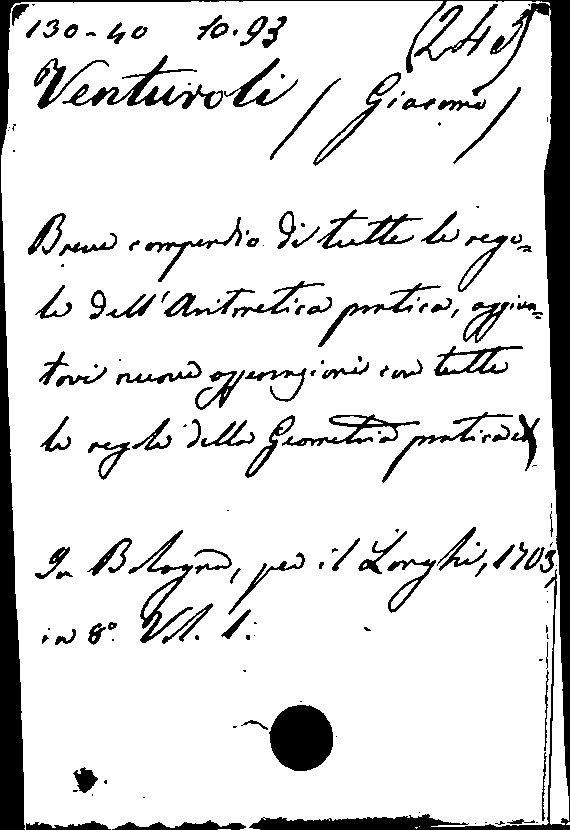 130-40 10.93 (243)
Venturoli / Giacomo /
Breve compendio di tutte le rego=
le dell'Aritmetica pratica, aggiun=
tovi nuove operazioni con tutte
le regole della Geometria pratica
In Bologna, per il Longhi, 1703,
in 8° Vol. 1.